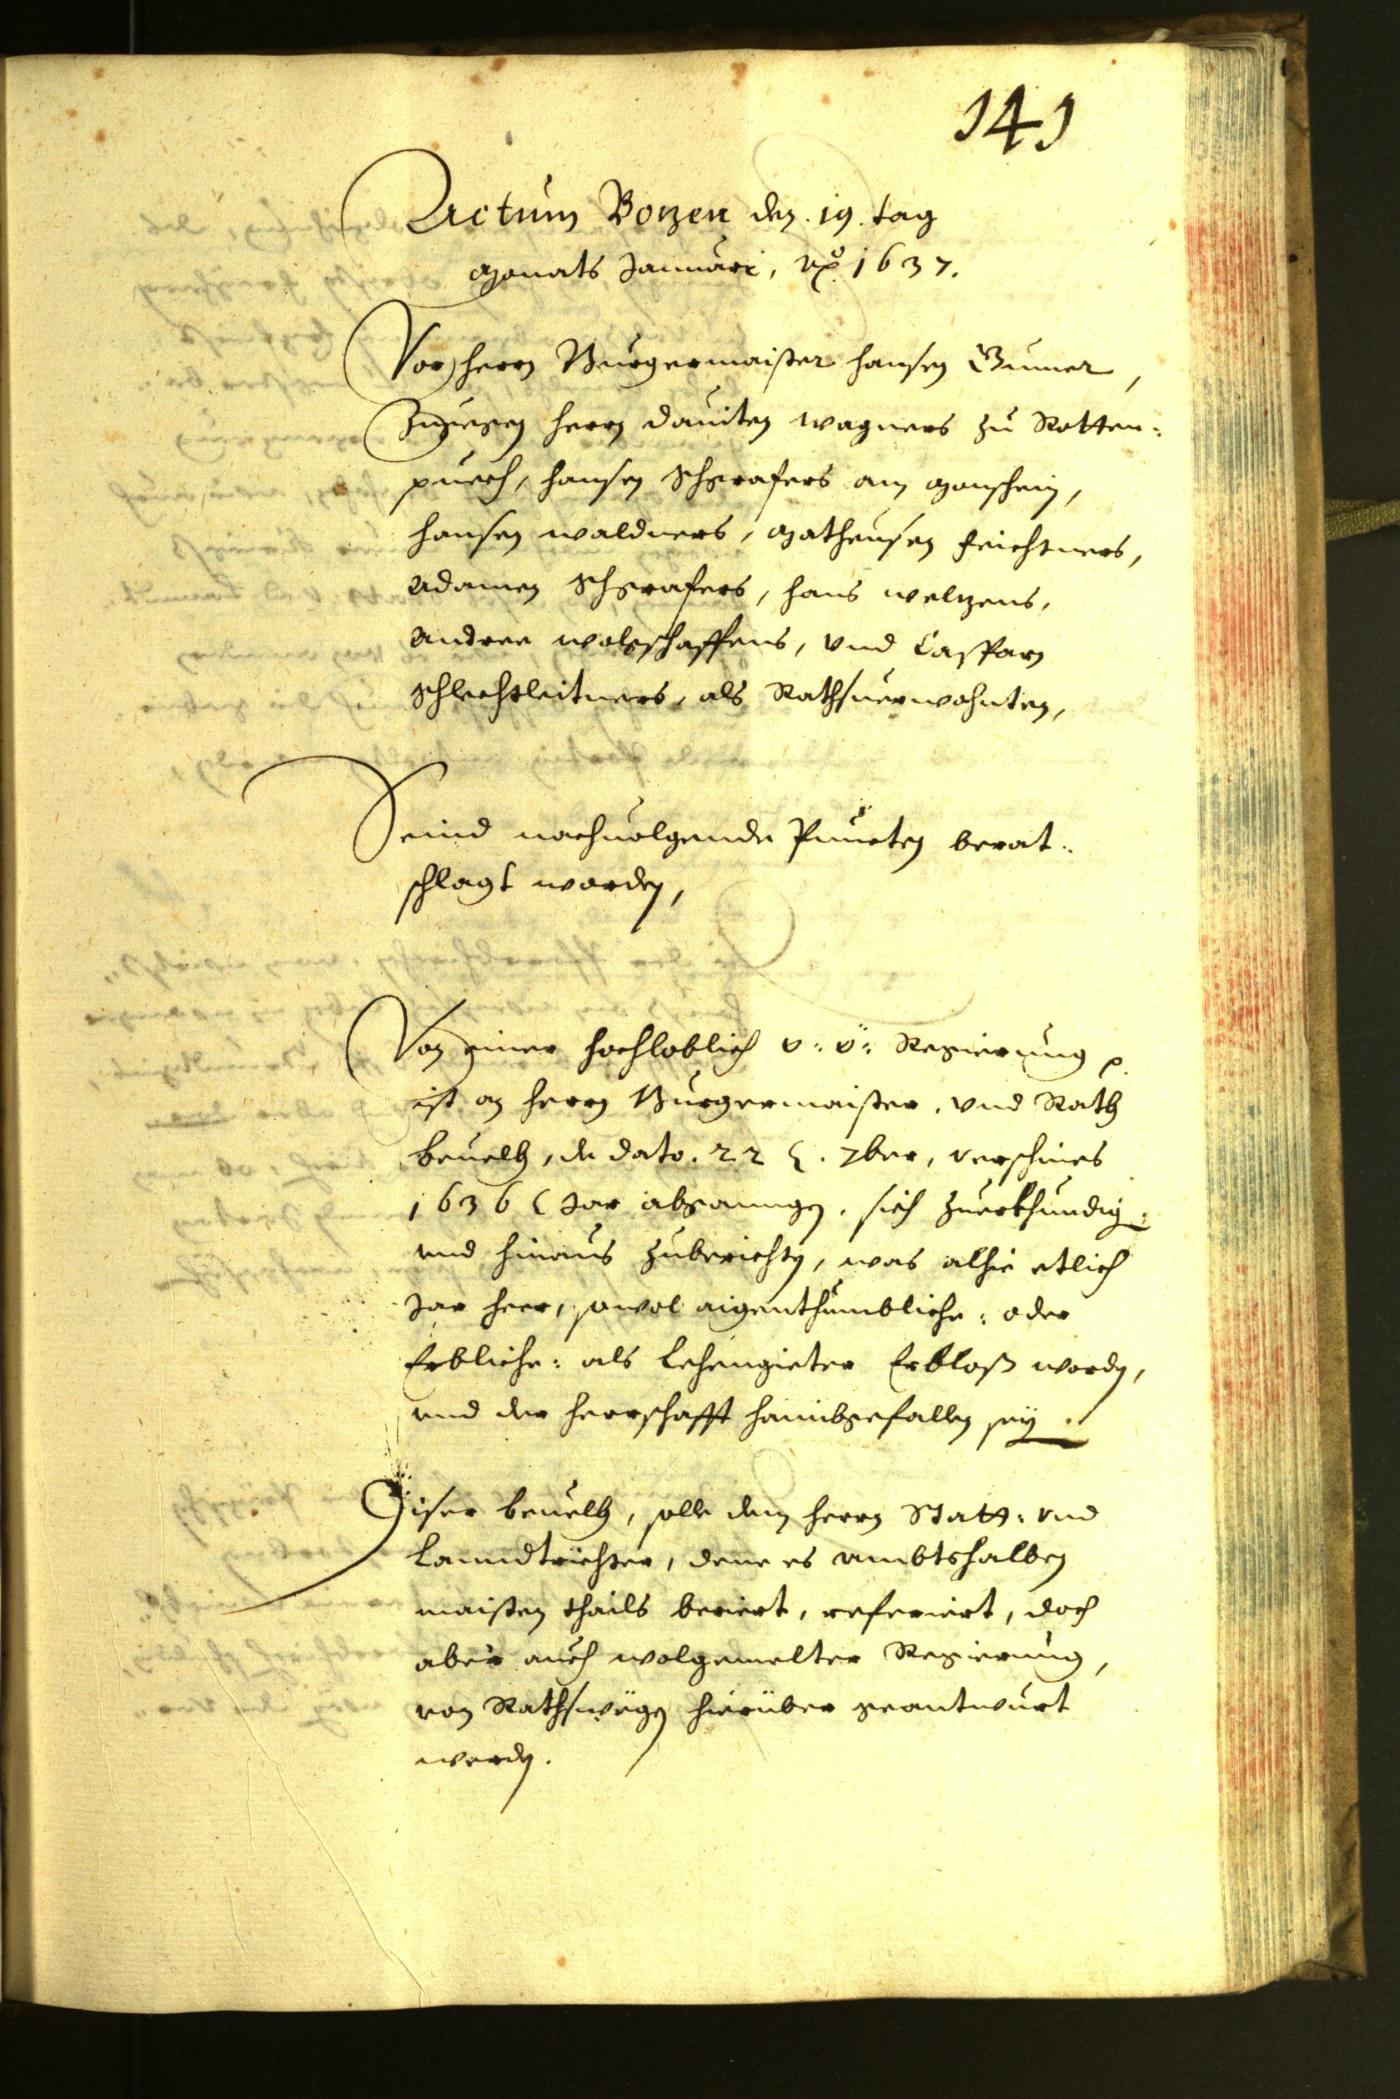 141
Actum Bozen den .19. tag
Monats Januari, Ao 1637.
Vor herrn Burgermaister Hansen Gumer,
Zugegen herrn Dauiten Wagners zu Rotten-
puech, Hansen Schgrafers am
Hansen Waldners, Matheusen Feichtners,
Adamen Schgrafers, Hans Welzens,
Andree Wolgschaffens, vnd Caspern
Schlechtleitners, als Rathsuerwohnten,
Seind nachuolgende Puncten berat-
schlagt worden,
Von einer hochloblich v: ö: Regierung
ist an herrn Burgermaister, vnd Rath
beuelh, de dato .22. 7ber, verschines
1636 Jar abganngen, sich zuerkhundig:
und hinaus zuberichten, was alhie etlich
Jar heer, sowol aigenthumbliche: oder
Erbliche: als Lehengieter Erbloß worden,
und der herrschafft haimbgefallen sey.
Diser beuelh, solle dem herrn Statt- vnd
Lanndtrichter, deme es ambtshalben
maisten thails beriert, referiert, doch
aber auch wolgemelter Regierung,
von Rathswegen hierüber geantwurt
werden.